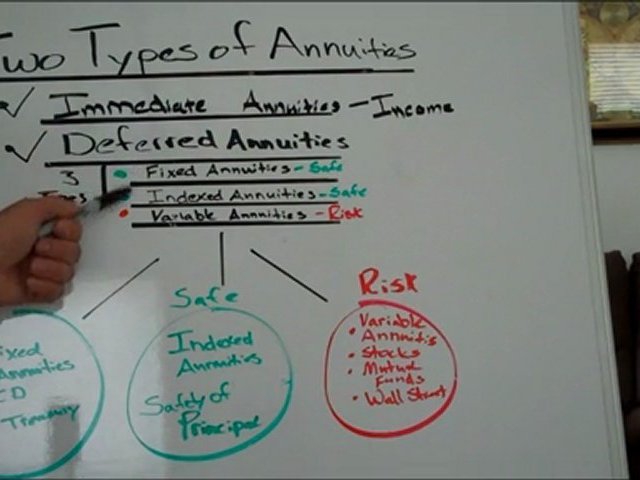 Two Types of Annuities
✓ Immediate Annuities - Income
✓ Deferred Annuities
3
• Fixed Annuities - Safe
Indexed Annuities - Safe
• Variable Annuities - Risk
Safe
Indexed
Annuities
Safety of
Principal
Risk
• Variable
Annuitis
• Stocks
• Mutual
Funds
• Wall Street
ixed
Annuities
CD
Treasury